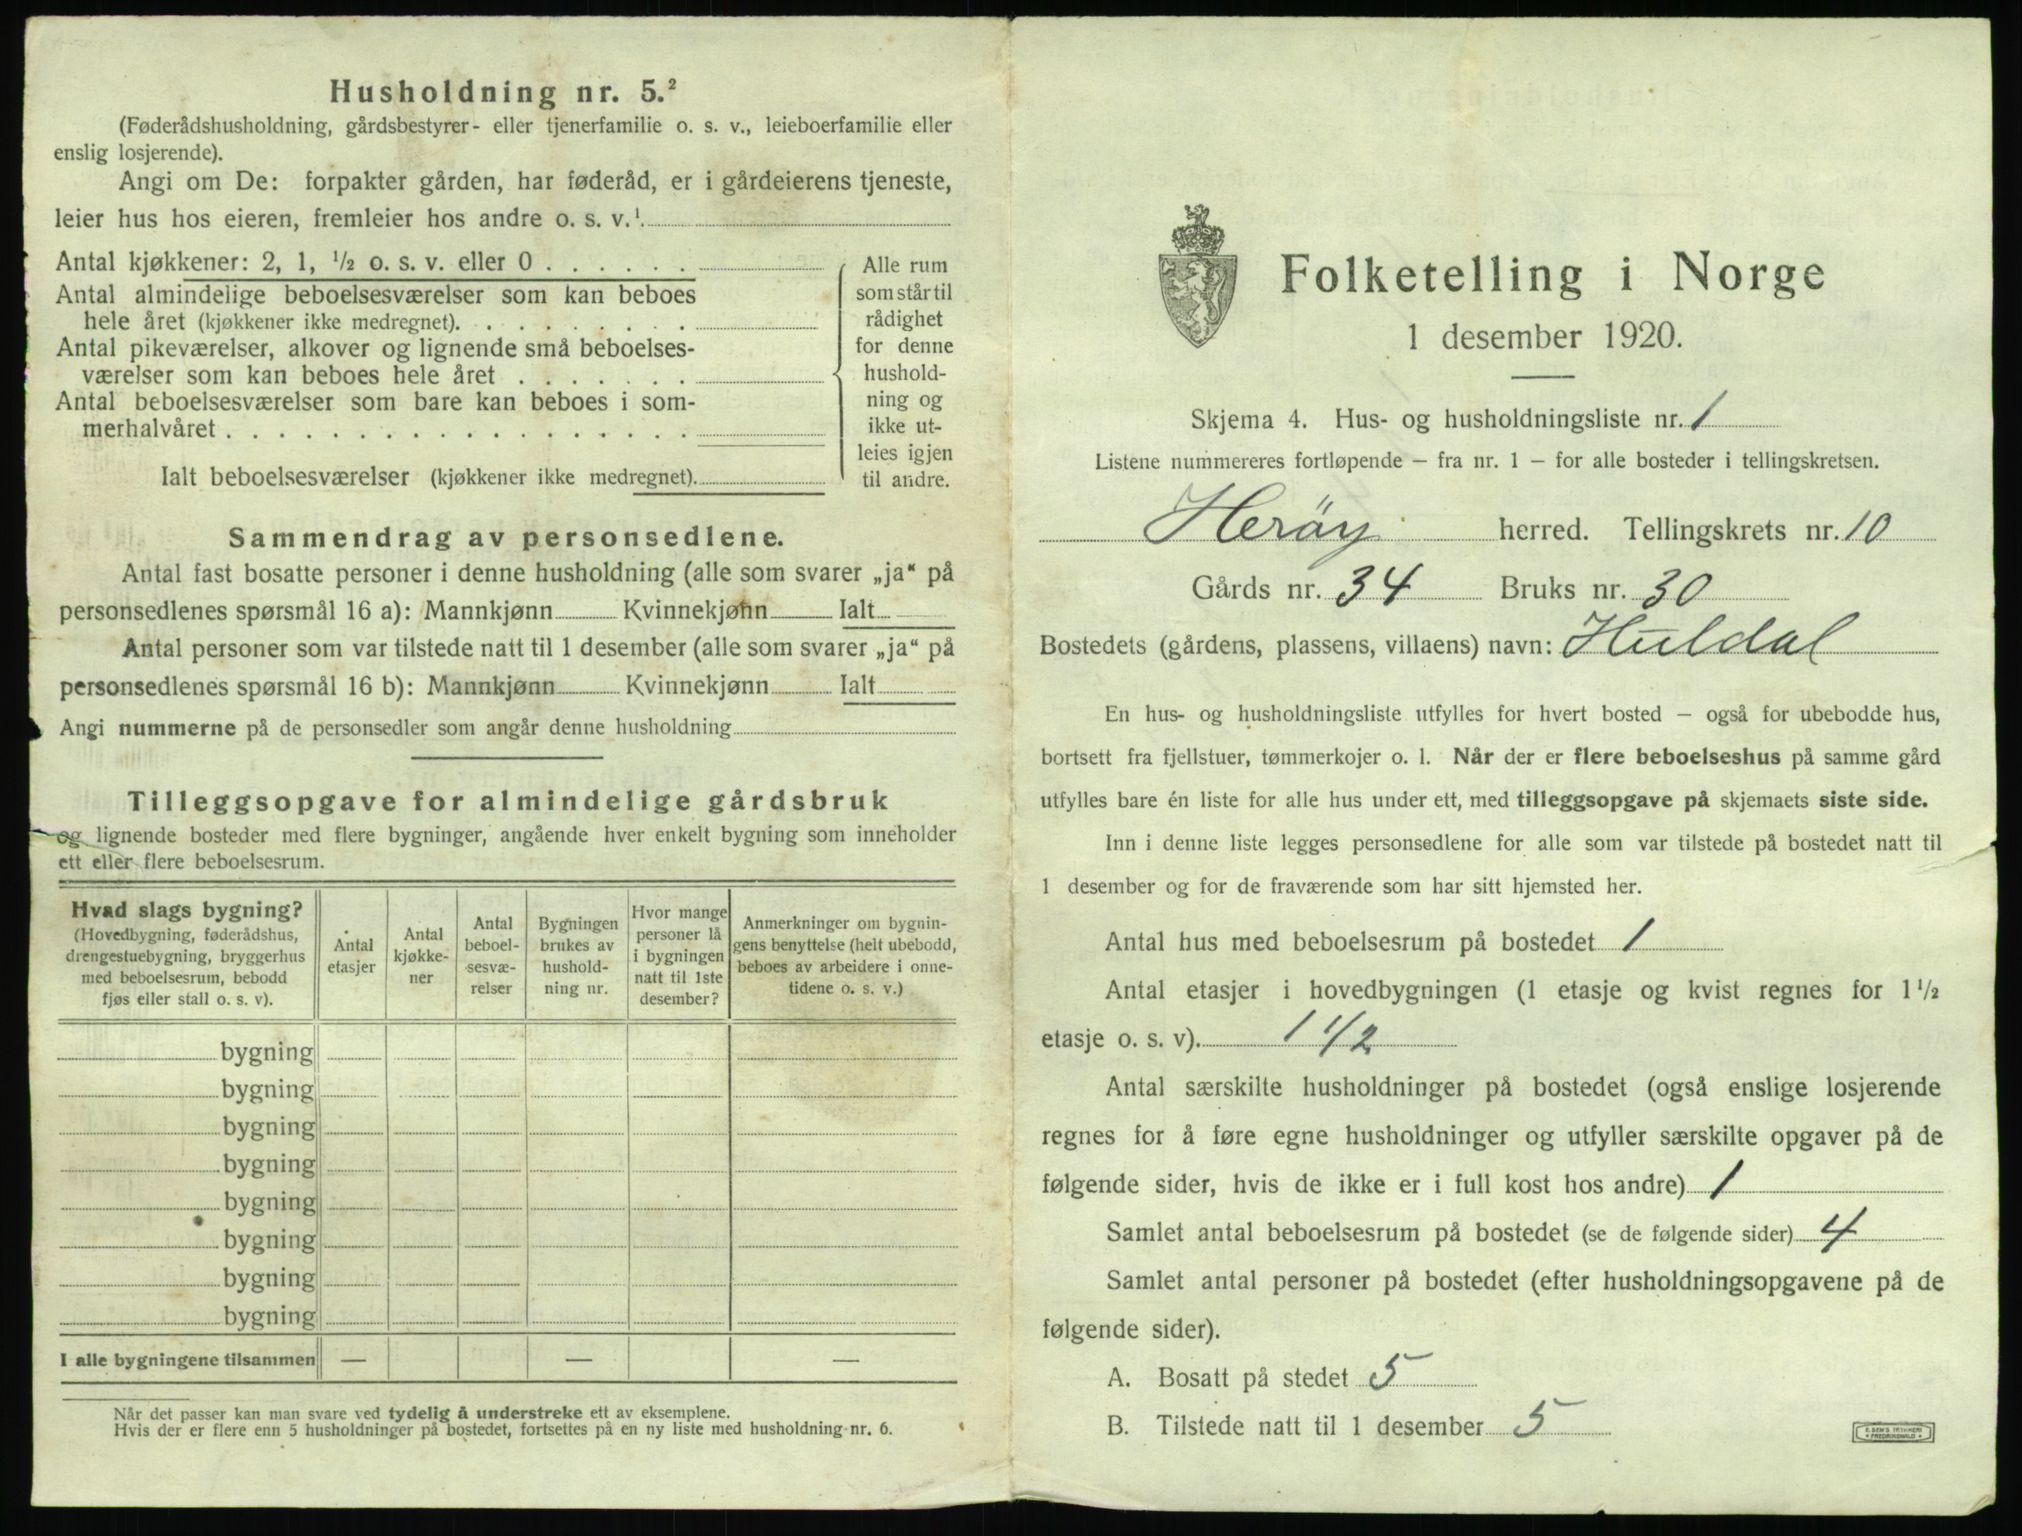 Husholdning nr. 5.²
(Føderådshusholdning, gårdsbestyrer- eller tjenerfamilie o. s. v., leieboerfamilie eller
enslig losjerende).
Angi om De: forpakter gården, har føderåd, er i gårdeierens tjeneste,
leier hus hos eieren, fremleier hos andre o. s. v.¹
Antal kjøkkener: 2, 1, ½ o. s. v. eller 0 . . . . . .
Antal almindelige beboelsesværelser som kan beboes
hele året (kjøkkener ikke medregnet). . . . . . . . .
Antal pikeværelser, alkover og lignende små beboelses-
værelser som kan beboes hele året . . . . . . .
Antal beboelsesværelser som bare kan beboes i som-
merhalvåret . . . . . . . . . . . . . . . . . .
Ialt beboelsesværelser (kjøkkener ikke medregnet).
Alle rum
som står til
rådighet
for denne
hushold-
ning og
ikke ut-
leies igjen
til andre.
Sammendrag av personsedlene.
Antal fast bosatte personer i denne husholdning (alle som svarer „ja“ på
personsedlenes spørsmål 16 a): Mannkjønn Kvinnekjønn Ialt
Antal personer som var tilstede natt til 1 desember (alle som svarer „ja“ på
personsedlenes spørsmål 16 b): Mannkjønn Kvinnekjønn Ialt
Angi nummerne på de personsedler som angår denne husholdning
Tilleggsopgave for almindelige gårdsbruk
og lignende bosteder med flere bygninger, angående hver enkelt bygning som inneholder
ett eller flere beboelsesrum.
Hvad slags bygning?
(Hovedbygning, føderådshus,
drengestuebygning, bryggerhus
med beboelsesrum, bebodd
fjøs eller stall o. s. v).
Antal
etasjer
Antal
kjøkke-
ner
Antal
beboel-
sesvæ-
relser
Bygningen
brukes av
hushold-
ning nr.
Hvor mange
personer lå
i bygningen
natt til 1ste
desember?
Anmerkninger om bygnin-
gens benyttelse (helt ubebodd,
beboes av arbeidere i onne-
tidene o. s. v.)
bygning
bygning
bygning
bygning
bygning
bygning
bygning
bygning
I alle bygningene tilsammen — — —
Når det passer kan man svare ved tydelig å understreke ett av eksemplene.
Hvis der er flere enn 5 husholdninger på bostedet, fortsettes på en ny liste med husholdning nr. 6.
Folketelling i Norge
1 desember 1920.
Skjema 4. Hus- og husholdningsliste nr. 1
Listene nummereres fortløpende – fra nr. 1 – for alle bosteder i tellingskretsen.
Heröy herred. Tellingskrets nr. 10
Gårds nr. 34 Bruks nr. 30
Bostedets (gårdens, plassens, villaens) navn: Huldal
En hus- og husholdningsliste utfylles for hvert bosted – også for ubebodde hus,
bortsett fra fjellstuer, tømmerkojer o. l. Når der er flere beboelseshus på samme gård
utfylles bare én liste for alle hus under ett, med tilleggsopgave på skjemaets siste side.
Inn i denne liste legges personsedlene for alle som var tilstede på bostedet natt til
1 desember og for de fraværende som har sitt hjemsted her.
Antal hus med beboelsesrum på bostedet 1
Antal etasjer i hovedbygningen (1 etasje og kvist regnes for 1½
etasje o. s. v). 1 1/2
Antal særskilte husholdninger på bostedet (også enslige losjerende
regnes for å føre egne husholdninger og utfyller særskilte opgaver på de
følgende sider, hvis de ikke er i full kost hos andre) 1
Samlet antal beboelsesrum på bostedet (se de følgende sider) 4
Samlet antal personer på bostedet (efter husholdningsopgavene på de
følgende sider).
A. Bosatt på stedet 5
B. Tilstede natt til 1 desember 5